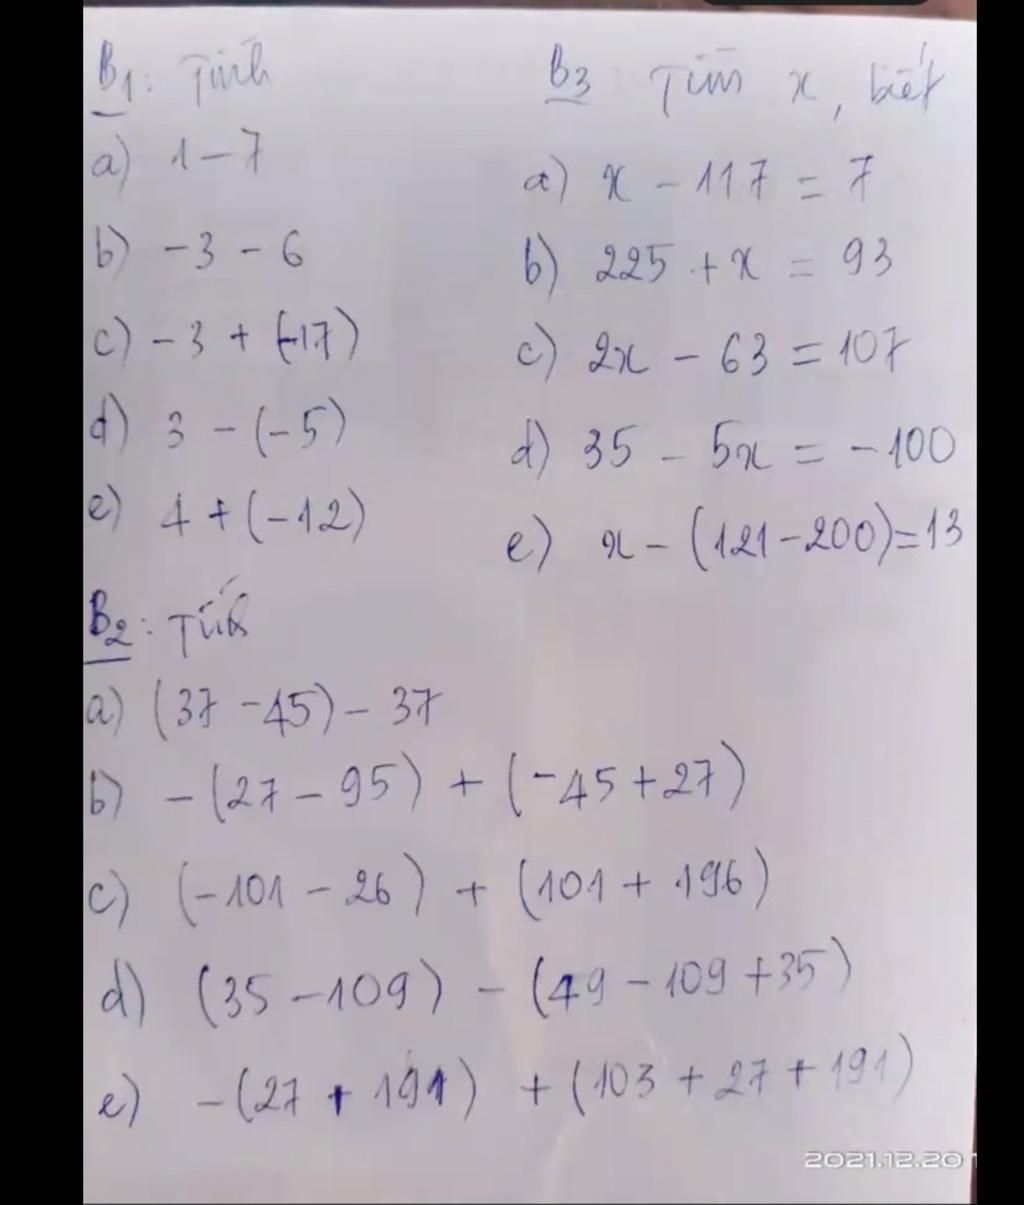 B1: Tính
a) 1 - 7
b) -3 - 6
c) -3 + (-17)
d) 3 - (-5)
e) 4 + (-12)
B2: Tính
a) (37 - 45) - 37
b) -(27 - 95) + (-45 + 27)
c) (-101 - 26) + (101 + 196)
d) (35 - 109) - (49 - 109 + 35)
e) -(27 + 191) + (103 + 27 + 191)
B3: Tìm x, biết
a) x - 117 = 7
b) 225 + x = 93
c) 2x - 63 = 107
d) 35 - 5x = -100
e) x - (121 - 200) = 13
2021.12.20